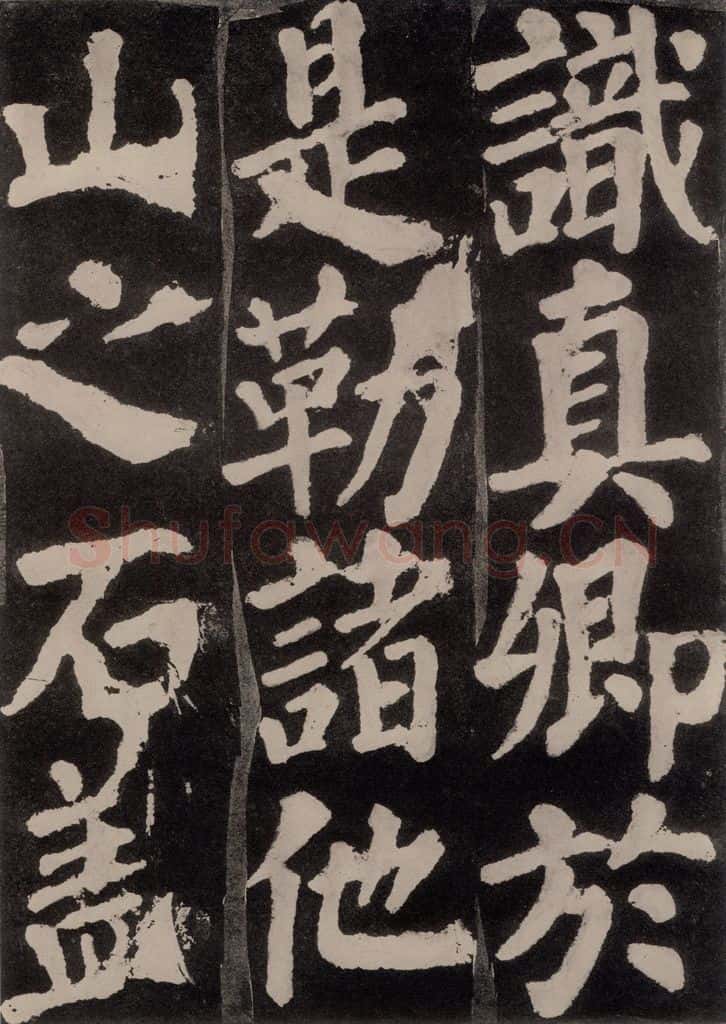 識真卿於
是勒諸他
山之石盖
Shufawang.CN